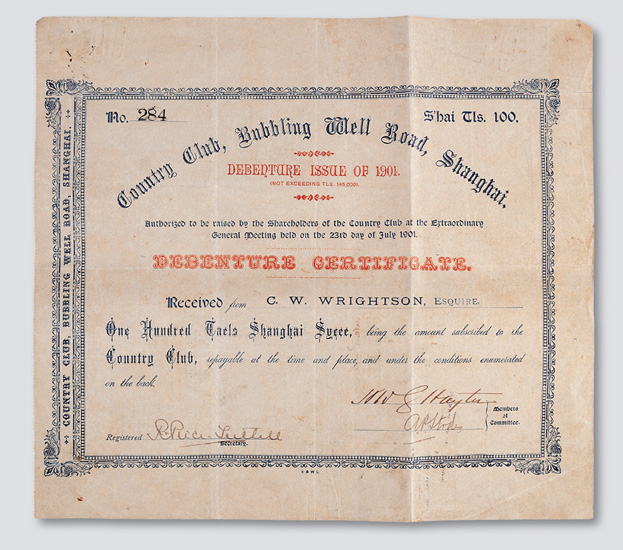 No. 284
S'hai Tls. 100.
Country Club, Bubbling Well Road, Shanghai.
DEBENTURE ISSUE OF 1901.
(NOT EXCEEDING TLS. 145,000).
Authorized to be raised by the Shareholders of the Country Club at the Extraordinary
General Meeting held on the 23rd day of July 1901.
DEBENTURE CERTIFICATE.
Received from C. W. WRIGHTSON, ESQUIRE.
One Hundred Taels Shanghai Sycee, being the amount subscribed to the
Country Club, repayable at the time and place, and under the conditions enumerated
on the back.
Members
of
Committee.
Registered
Secretary.
COUNTRY CLUB, BUBBLING WELL ROAD, SHANGHAI.